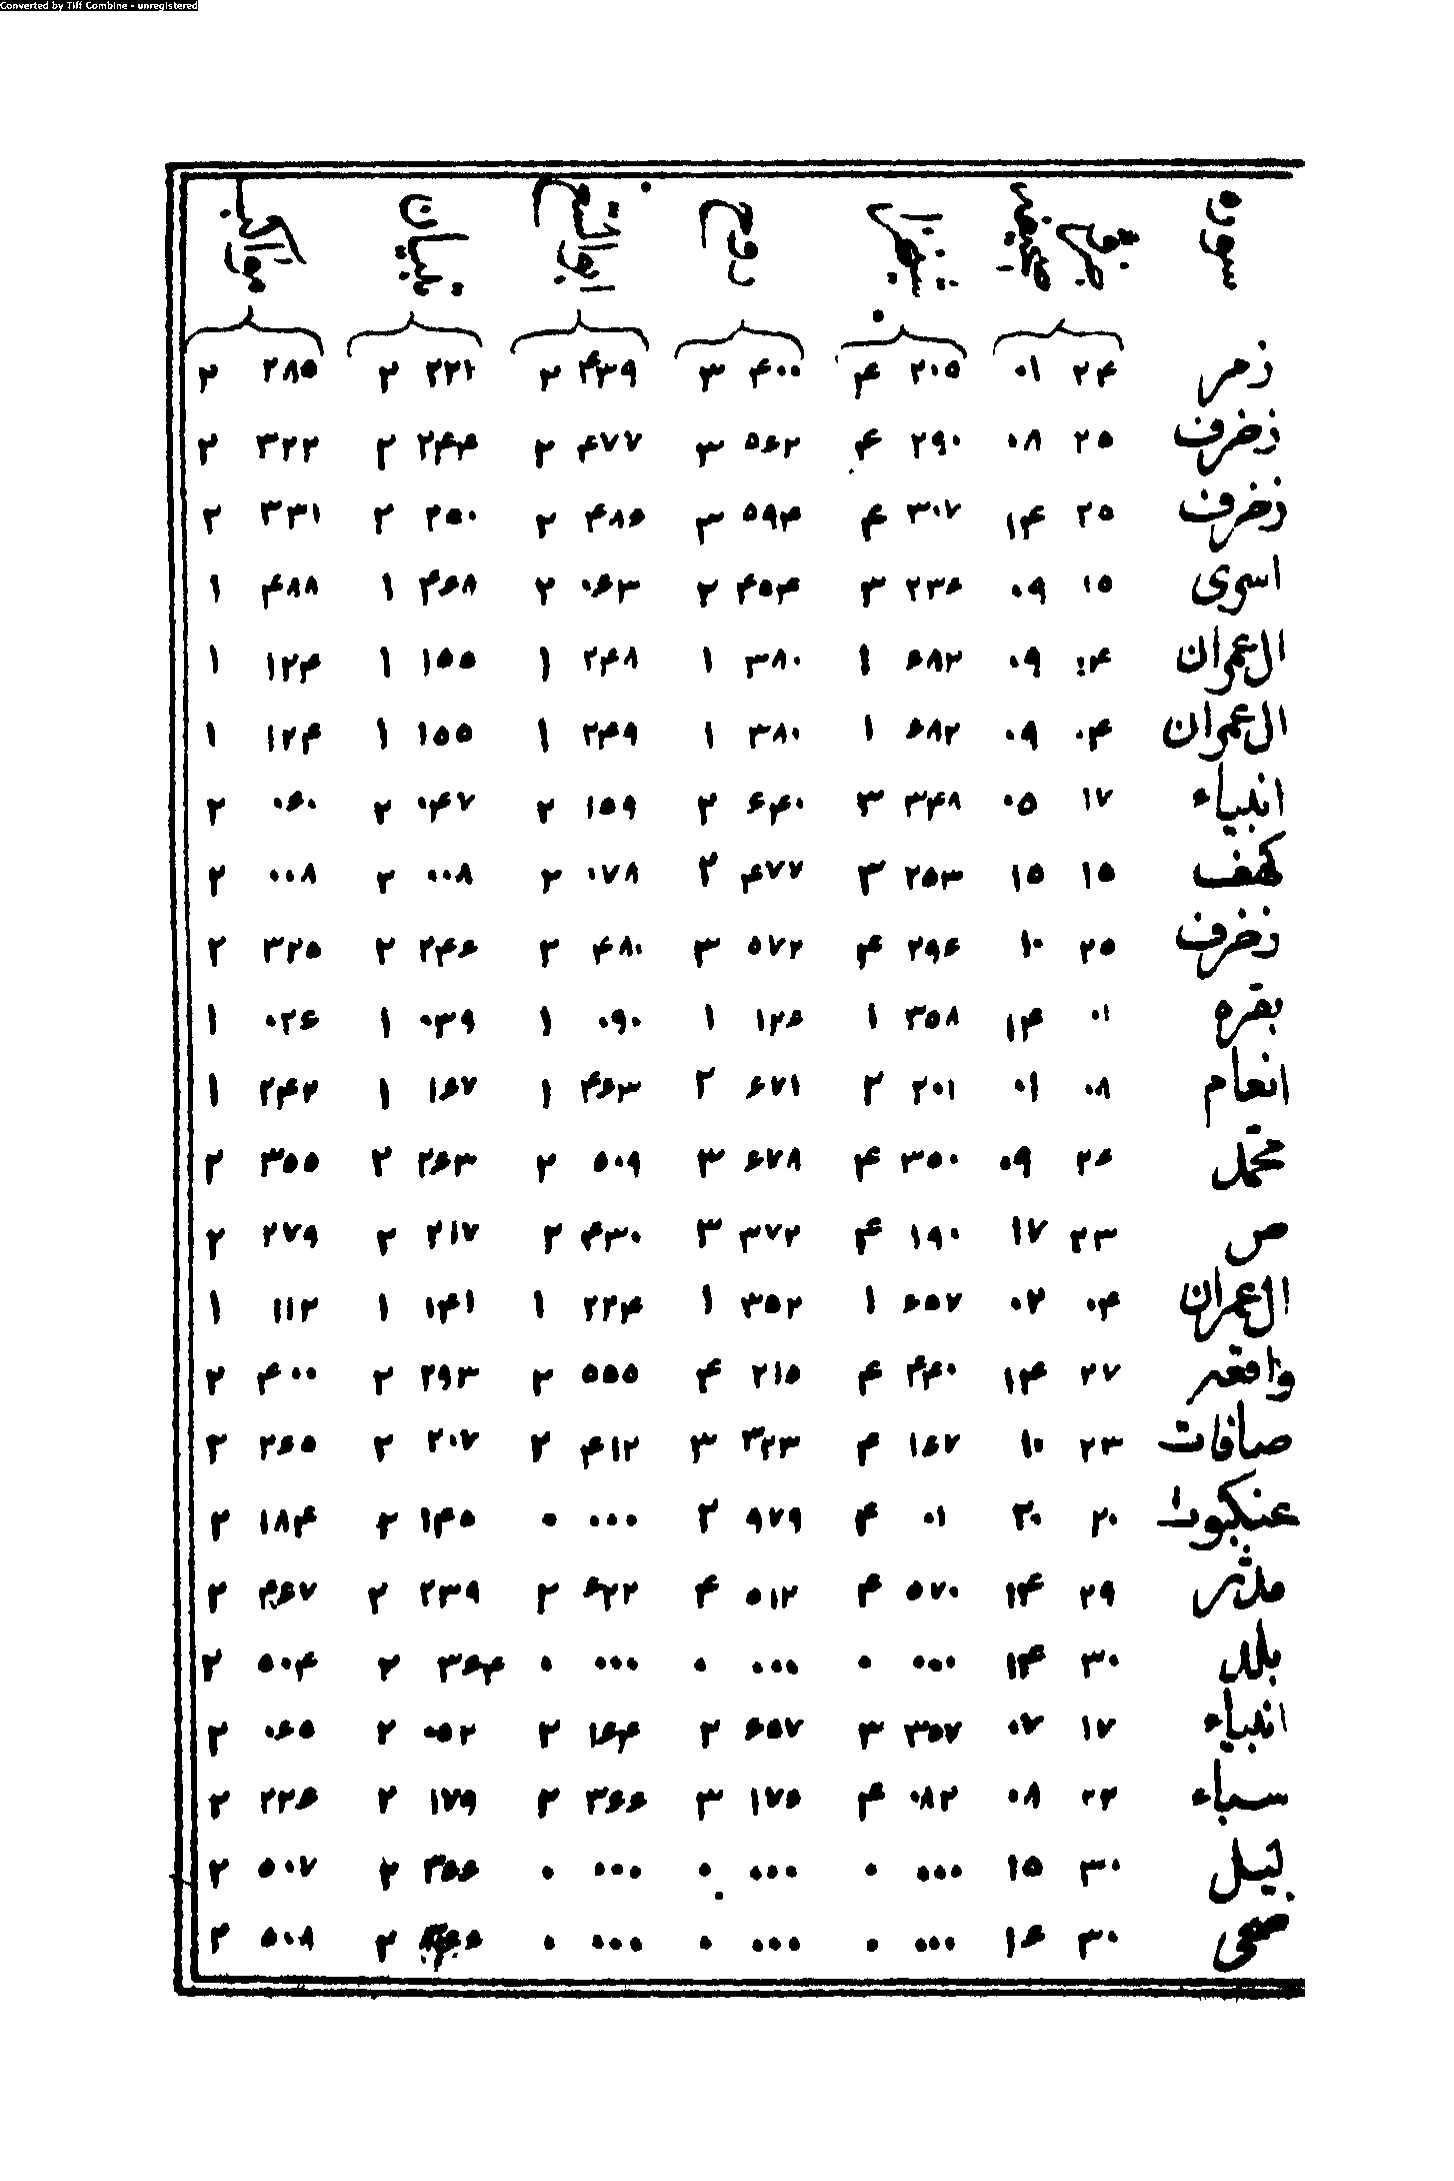 Converted by Tiff Combine - unregistered
زمر ۲۴ ۰۱ ۲۰۵ ۴ ۴۰۰ ۳ ۴۳۹ ۲ ۲۲۱ ۲ ۲۸۵ ۲
زخرف ۲۵ ۰۸ ۲۹۰ ۴ ۵۶۲ ۳ ۴۷۷ ۲ ۲۴۴ ۲ ۳۲۲ ۲
زخرف ۲۵ ۱۴ ۳۰۷ ۴ ۵۹۴ ۳ ۴۸۶ ۲ ۲۵۰ ۲ ۳۳۱ ۲
اسری ۱۵ ۰۹ ۲۳۶ ۳ ۴۵۴ ۲ ۰۶۳ ۲ ۴۶۸ ۱ ۴۸۸ ۱
ال عمران ۰۴ ۰۹ ۶۸۲ ۱ ۳۸۰ ۱ ۲۴۸ ۱ ۱۵۵ ۱ ۱۲۴ ۱
ال عمران ۰۴ ۰۹ ۶۸۲ ۱ ۳۸۰ ۱ ۲۴۹ ۱ ۱۵۵ ۱ ۱۲۴ ۱
انبیاء ۱۷ ۰۵ ۳۴۸ ۳ ۶۴۰ ۲ ۱۵۹ ۲ ۰۴۷ ۲ ۰۶۰ ۲
کهف ۱۵ ۱۵ ۲۵۳ ۳ ۴۷۷ ۲ ۰۷۸ ۲ ۰۰۸ ۲ ۰۰۸ ۲
زخرف ۲۵ ۱۰ ۲۹۶ ۴ ۵۷۲ ۳ ۴۸۰ ۲ ۲۴۶ ۲ ۳۲۵ ۲
بقره ۰۱ ۱۴ ۳۵۸ ۱ ۱۲۶ ۱ ۰۹۰ ۱ ۰۳۹ ۱ ۰۲۶ ۱
انعام ۰۸ ۰۱ ۲۰۱ ۲ ۶۷۱ ۲ ۴۶۳ ۱ ۱۶۷ ۱ ۲۴۲ ۱
محمد ۲۶ ۰۹ ۳۵۰ ۴ ۶۷۸ ۳ ۵۰۹ ۲ ۲۶۳ ۲ ۳۵۵ ۲
ص ۲۳ ۱۷ ۱۹۰ ۴ ۳۷۲ ۳ ۴۳۰ ۲ ۲۱۷ ۲ ۲۷۹ ۲
ال عمران ۰۴ ۰۲ ۶۵۷ ۱ ۳۵۲ ۱ ۲۲۴ ۱ ۱۴۱ ۱ ۱۱۲ ۱
واقعه ۲۷ ۱۴ ۴۴۰ ۴ ۲۱۵ ۴ ۵۵۵ ۲ ۲۹۳ ۲ ۴۰۰ ۲
صافات ۲۳ ۱۰ ۱۶۷ ۴ ۳۲۳ ۳ ۴۱۲ ۲ ۲۰۷ ۲ ۲۶۵ ۲
عنکبوت ۲۰ ۲۰ ۰۱ ۴ ۹۷۹ ۲ ۰۰۰ ۰ ۱۴۵ ۲ ۱۸۴ ۲
مدثر ۲۹ ۱۴ ۵۷۰ ۴ ۵۱۲ ۴ ۶۲۲ ۲ ۲۳۹ ۲ ۴۶۷ ۲
بلد ۳۰ ۱۴ ۰۰۰ ۰ ۰۰۰ ۰ ۰۰۰ ۰ ۳۶۴ ۲ ۵۰۴ ۲
انبیاء ۱۷ ۰۷ ۳۵۷ ۳ ۶۵۷ ۲ ۱۶۴ ۲ ۰۵۲ ۲ ۰۶۵ ۲
سباء ۲۲ ۰۸ ۰۸۲ ۴ ۱۷۶ ۳ ۳۶۶ ۲ ۱۷۹ ۲ ۲۲۶ ۲
لیل ۳۰ ۱۵ ۰۰۰ ۰ ۰۰۰ ۰ ۰۰۰ ۰ ۳۶۶ ۲ ۵۰۷ ۲
ضحی ۳۰ ۱۶ ۰۰۰ ۰ ۰۰۰ ۰ ۰۰۰ ۰ ۲ ۵۰۸ ۲